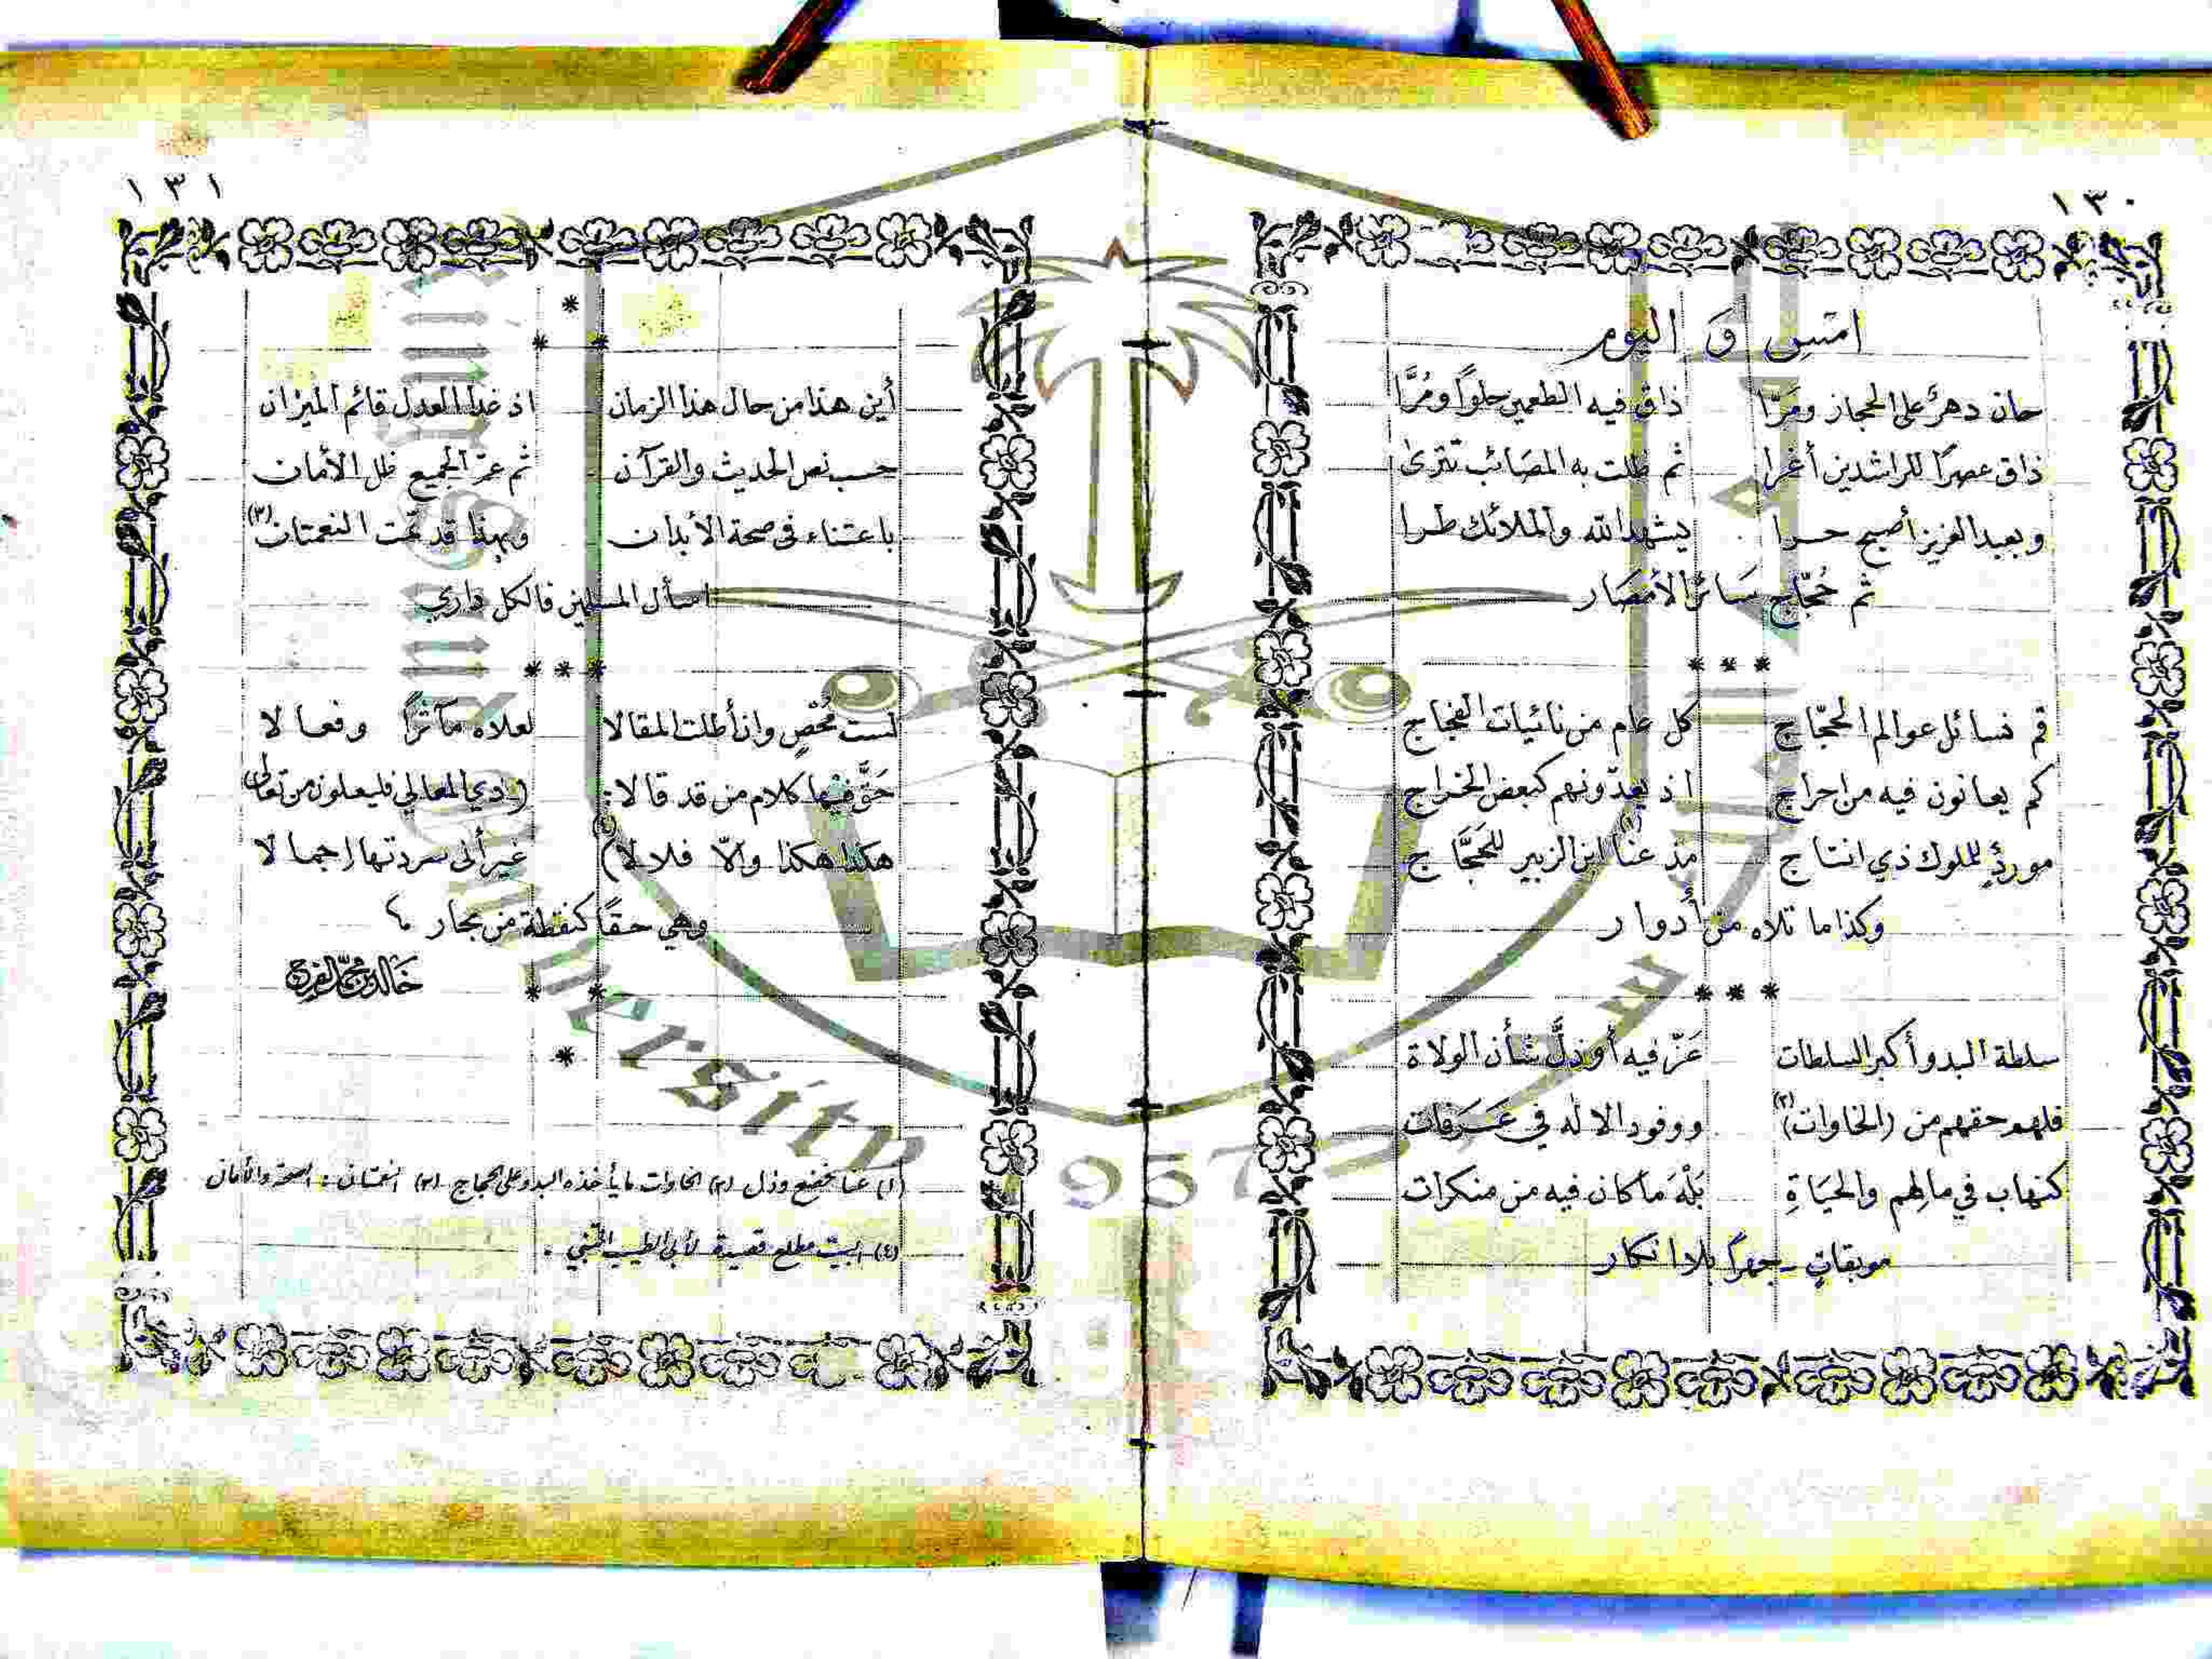 ١٣٠
امس و اليوم
حان دهرٌ على الحجاز ومَرّا ذاق فيه الطعمين حلواً ومُرَّا
ذاق عصراً للراشدين أغرا ثم ظلت به المصَائب تترىٰ
وبعبد العزيز أصبح حرا يشهد الله والملائك طرا
ثم حُجّاج سَائر الأمصَار
***
قم نسائل عوالم الحجّاج كل عام من نائيات الفجاج
كم يعانون فيه من احراج اذ يعدّونهم كبعض الخراج
موردٍ للملوك ذي انتاج مذ عنا (١) ابن الزبير للحَجَّاج
وكذا ما تلاه من أدوار
***
سلطة البدو أكبر السلطات عَزّ فيه أو ذلَّ شأن الولاة
فلهم حقهم من (الخاوات) (٢) ووفود الاله في عَرَفات
كنهاب في مالِهم والحيَاةِ بَلْهَ ما كان فيه من منكرات
موبقاتٍ - جهراً بلا انكار
١٣١
*
* *
أين هذا من حال هذا الزمان اذ غدا العدل قائم الميزان
حسب نص الحديث والقرآن ثم عمّ الجميع ظل الأمان
باعتناء في صحة الأبدان وبهذا قد تمت النعمتان (٣)
اسأل المسلمين فالكل داري
***
لست مُحْصٍ وان أطلت المقالا لعلاه مآثراً وفعالا
حَقَّ فيها كلام من قد قالا: (ذي المعالي فليعلون من تعالى
هكذا هكذا والّا فلا لا) (٤) غير أني سردتها اجمالا
وهي حقاً كنقطة من بحار ،
خالد بن محمد الفرج
* *
*
(١) عنا: خضع وذل (٢) الخاوات ما يأخذه البدو على الحجاج (٣) النعمتان: الصحة والأمان
(٤) البيت مطلع قصيدة لأبي الطيب المتنبي .